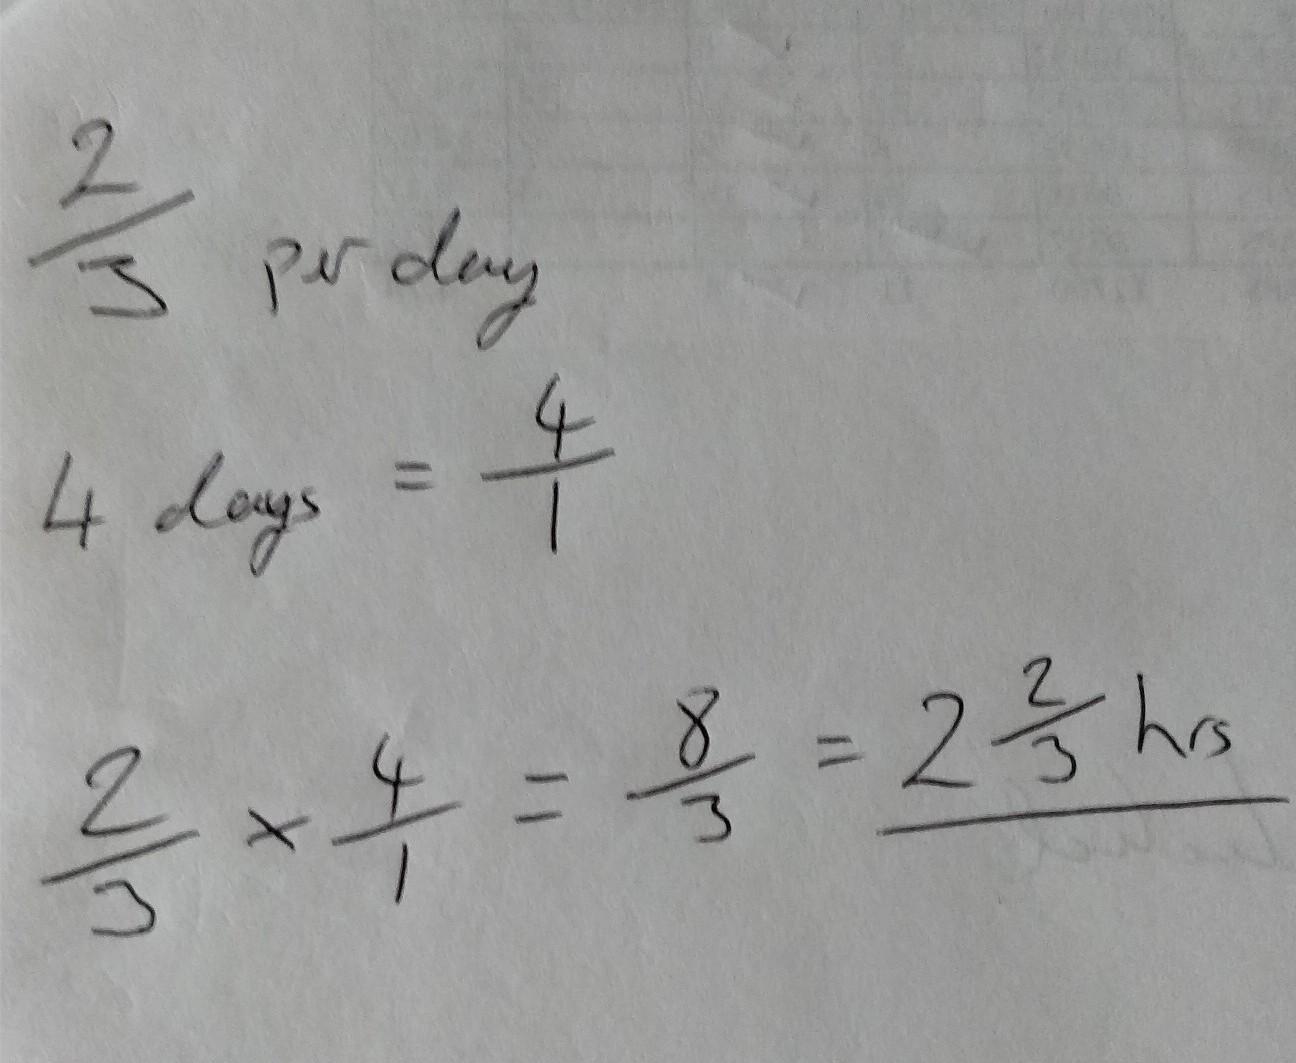 2/3 per day
4 days = 4/1
2/3 × 4/1 = 8/3 = 2 2/3 hrs